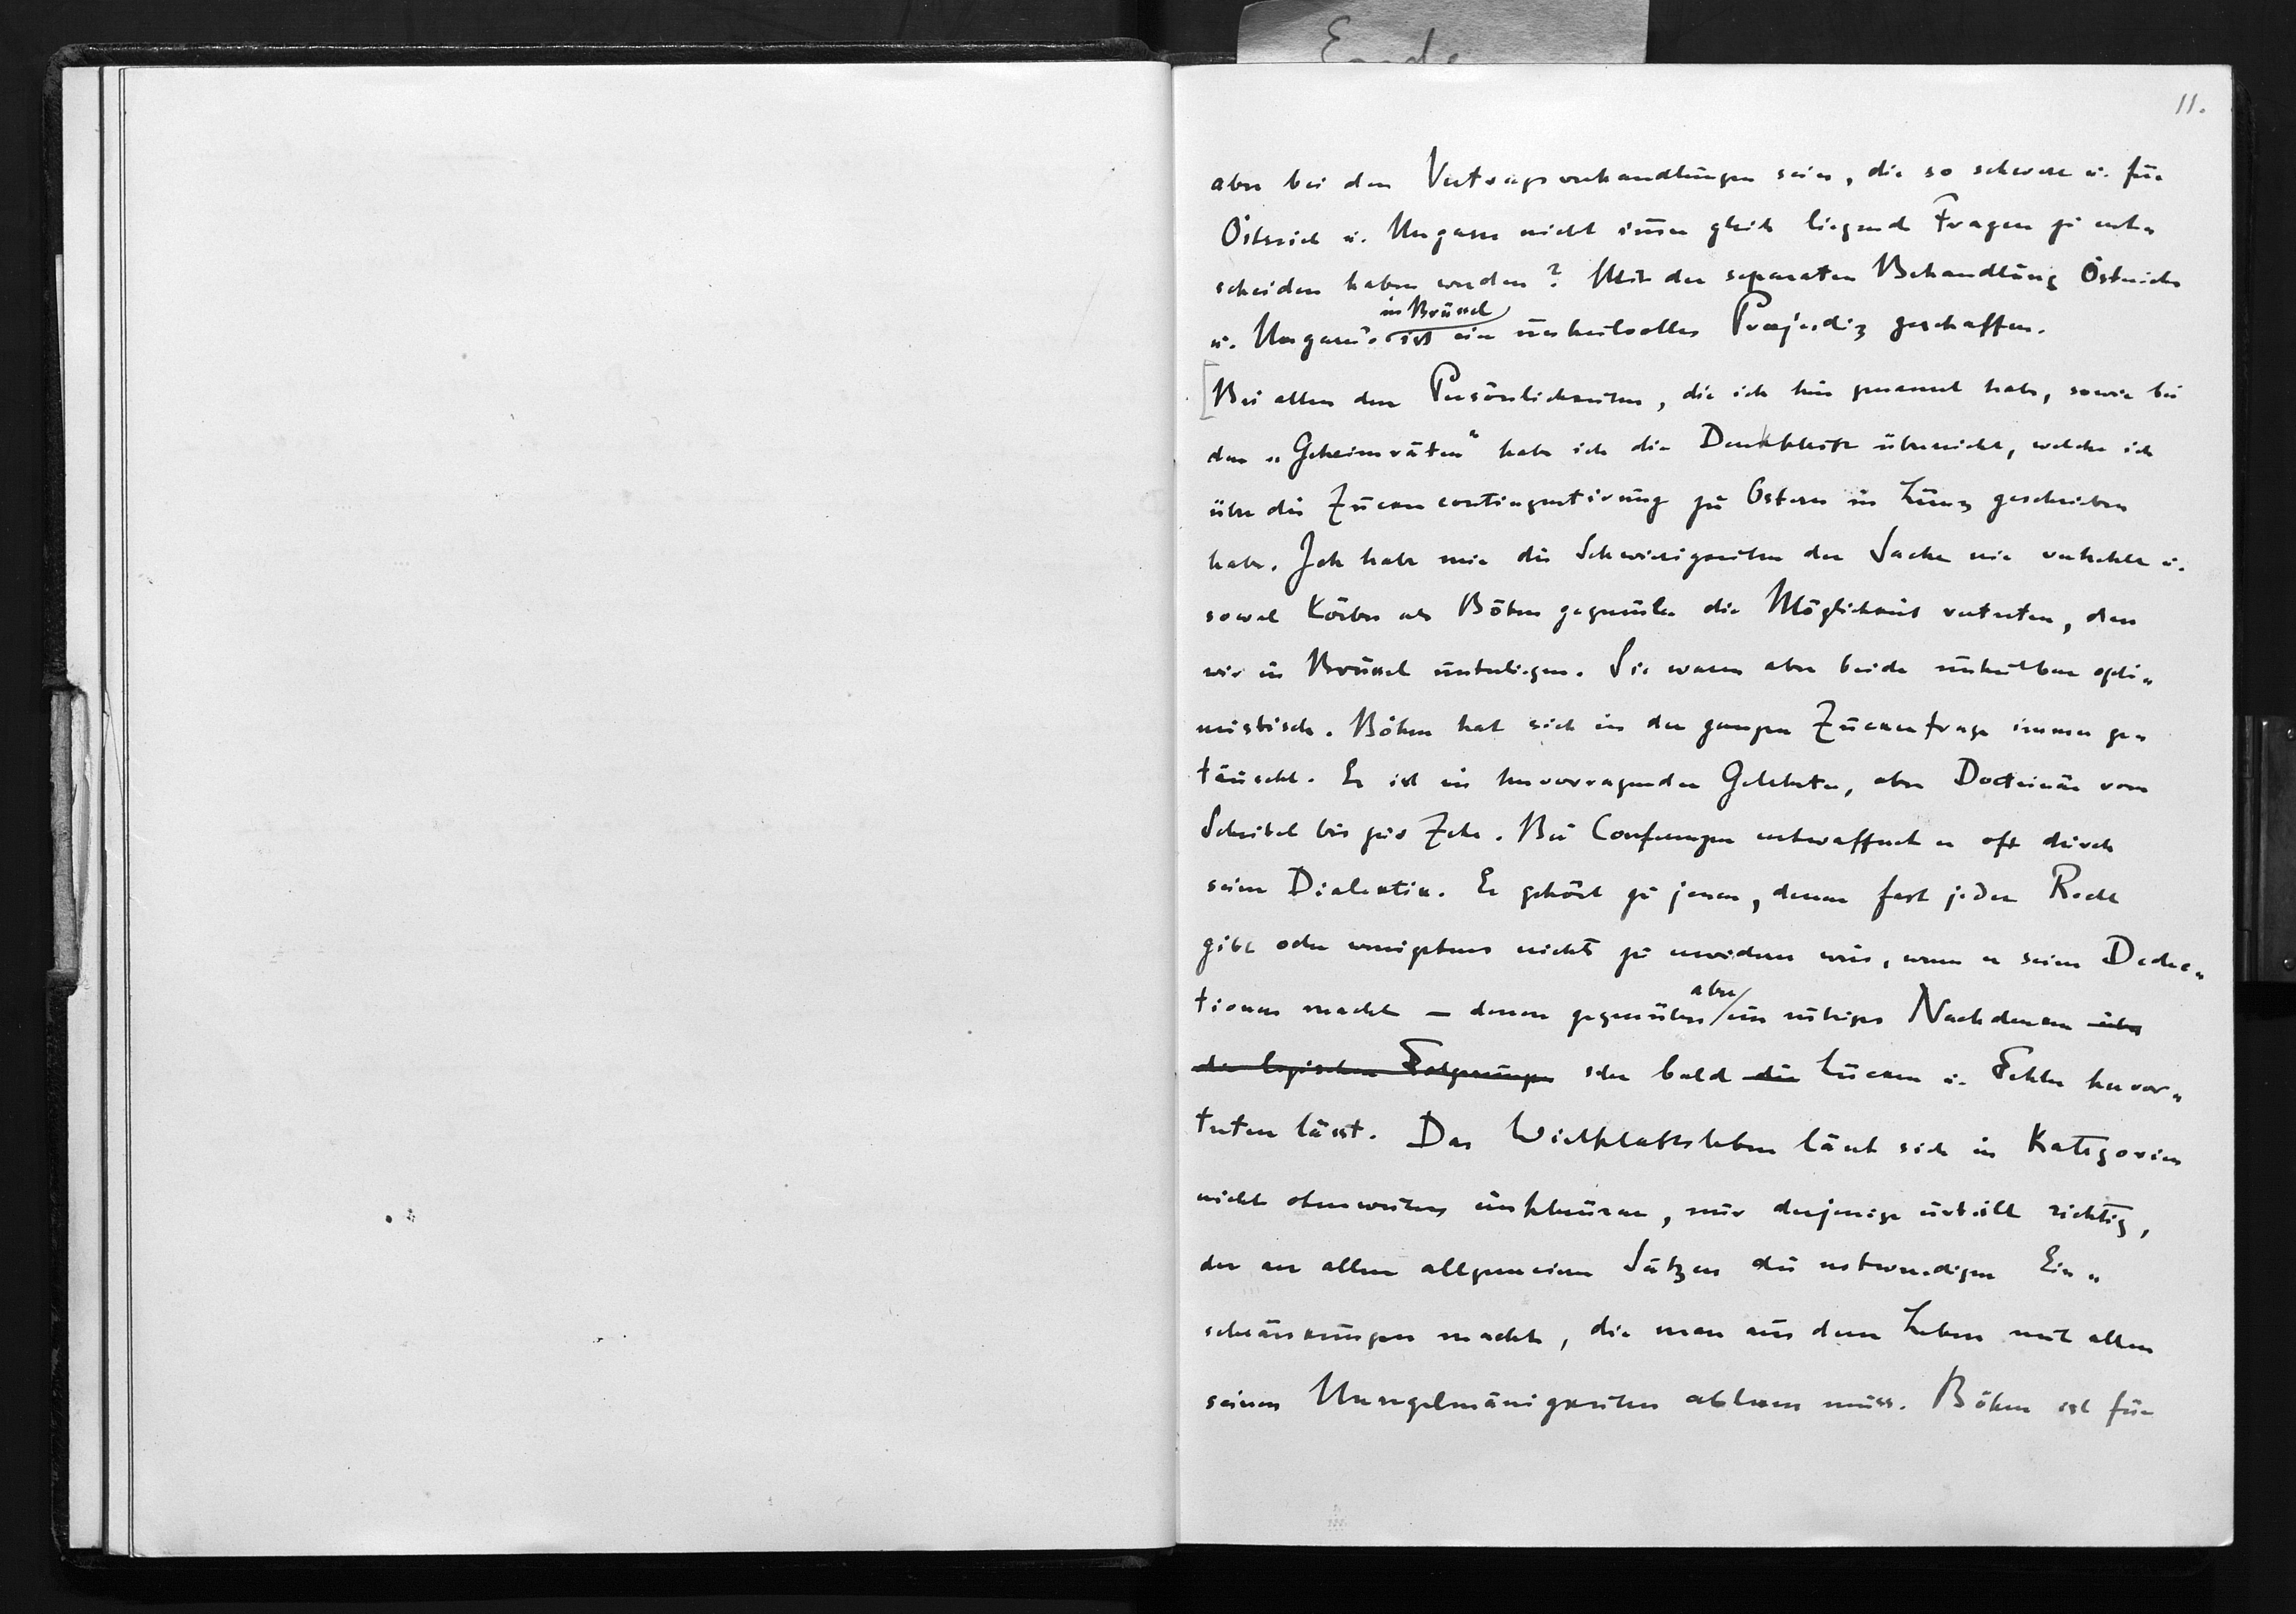 Ende
11.
aber bei den Vertragsverhandlungen sein, die so schwere u. für
Östreich u. Ungarn nicht im̅er gleich liegende Fragen zu ent„
scheiden haben werden? Mit der separaten Behandlung Östreichs
in Brüssel
u. Ungarns ist ein unheilvolles Praejudiz geschaffen.
[Bei allen den Persönlichkeiten, die ich hier genannt habe, sowie bei
den „Geheimräten“ habe ich die Denkschrift überreicht, welche ich
über die Zuckercontingentirung zu Ostern in Lunz geschrieben
habe. Ich habe mir die Schwierigkeiten der Sache nie verhehlt u.
sowol Körber als Böhm gegenüber die Möglichkeit vertreten, dass
wir in Brüssel unterliegen. Sie waren aber beide unheilbar opti„
mistisch. Böhm hat sich in der ganzen Zuckerfrage immer ge„
täuscht. Er ist ein hervorragender Gelehrter, aber Doctrinär vom
Scheitel bis zur Zehe. Bei Conferenzen entwaffnet er oft durch
seine Dialektik. Er gehört zu jenen, denen fast jeder Recht
gibt oder wenigstens nichts zu erwidern weis, wenn er seine Deduc„
aber
tionen macht – denen gegenüber ein ruhiges Nachdenken über
die logischen Folgerungen sehr bald die Lücken u. Fehler hervor„
treten lässt. Das Wirthschaftsleben lässt sich in Kategorien
nicht ohneweiters einschnüren, nur derjenige urteilt richtig,
der an allen allgemeinen Sätzen die notwendigen Ein„
schränkungen macht, die man aus dem Leben mit allen
seinen Unregelmässigkeiten ablesen muss. Böhm ist für